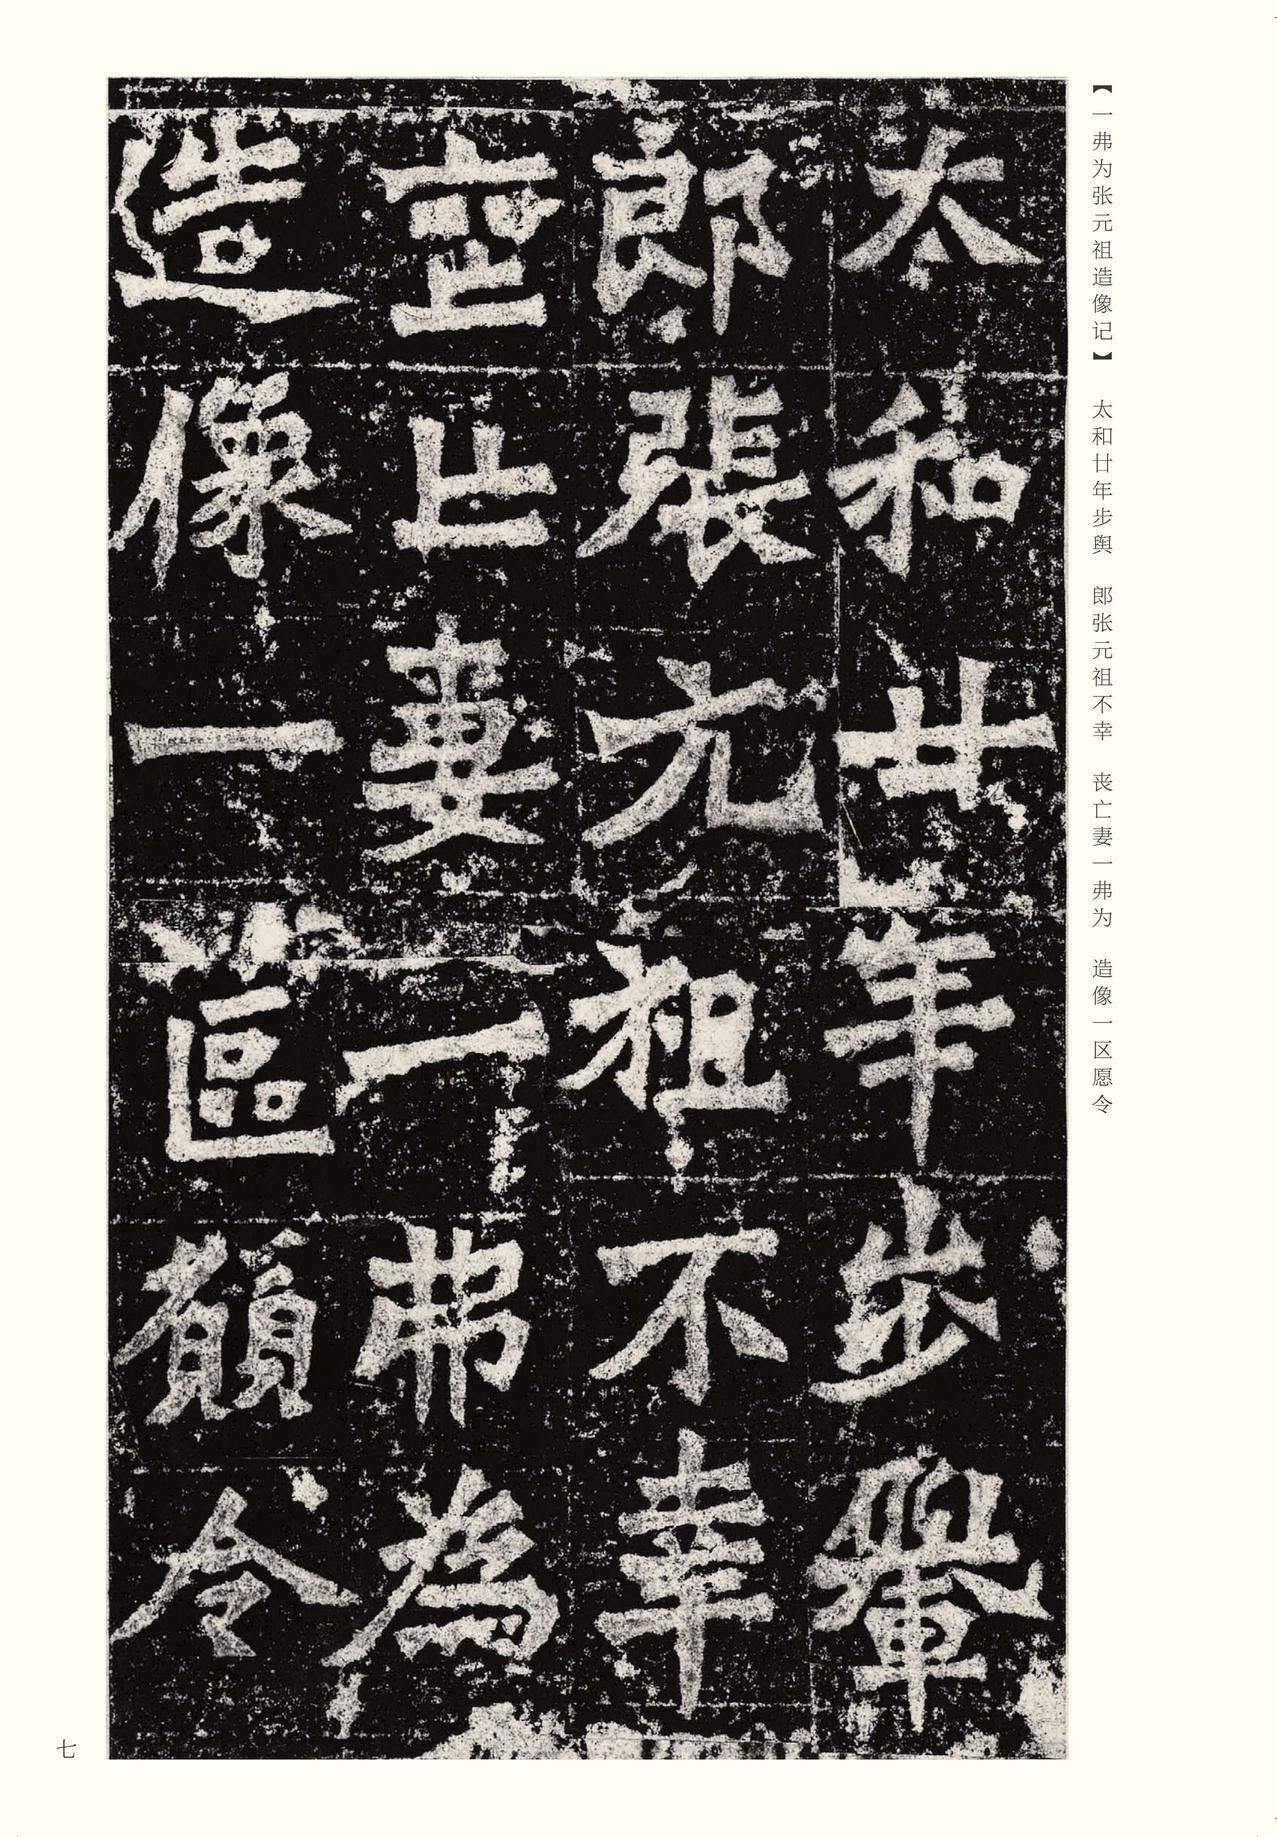 【一弗为张元祖造像记】 太和廿年步舆 郎张元祖不幸 丧亡妻一弗为 造像一区愿令
太和廿年步轝
郎張元祖不幸
喪亡妻一弗為
造像一區願令
七